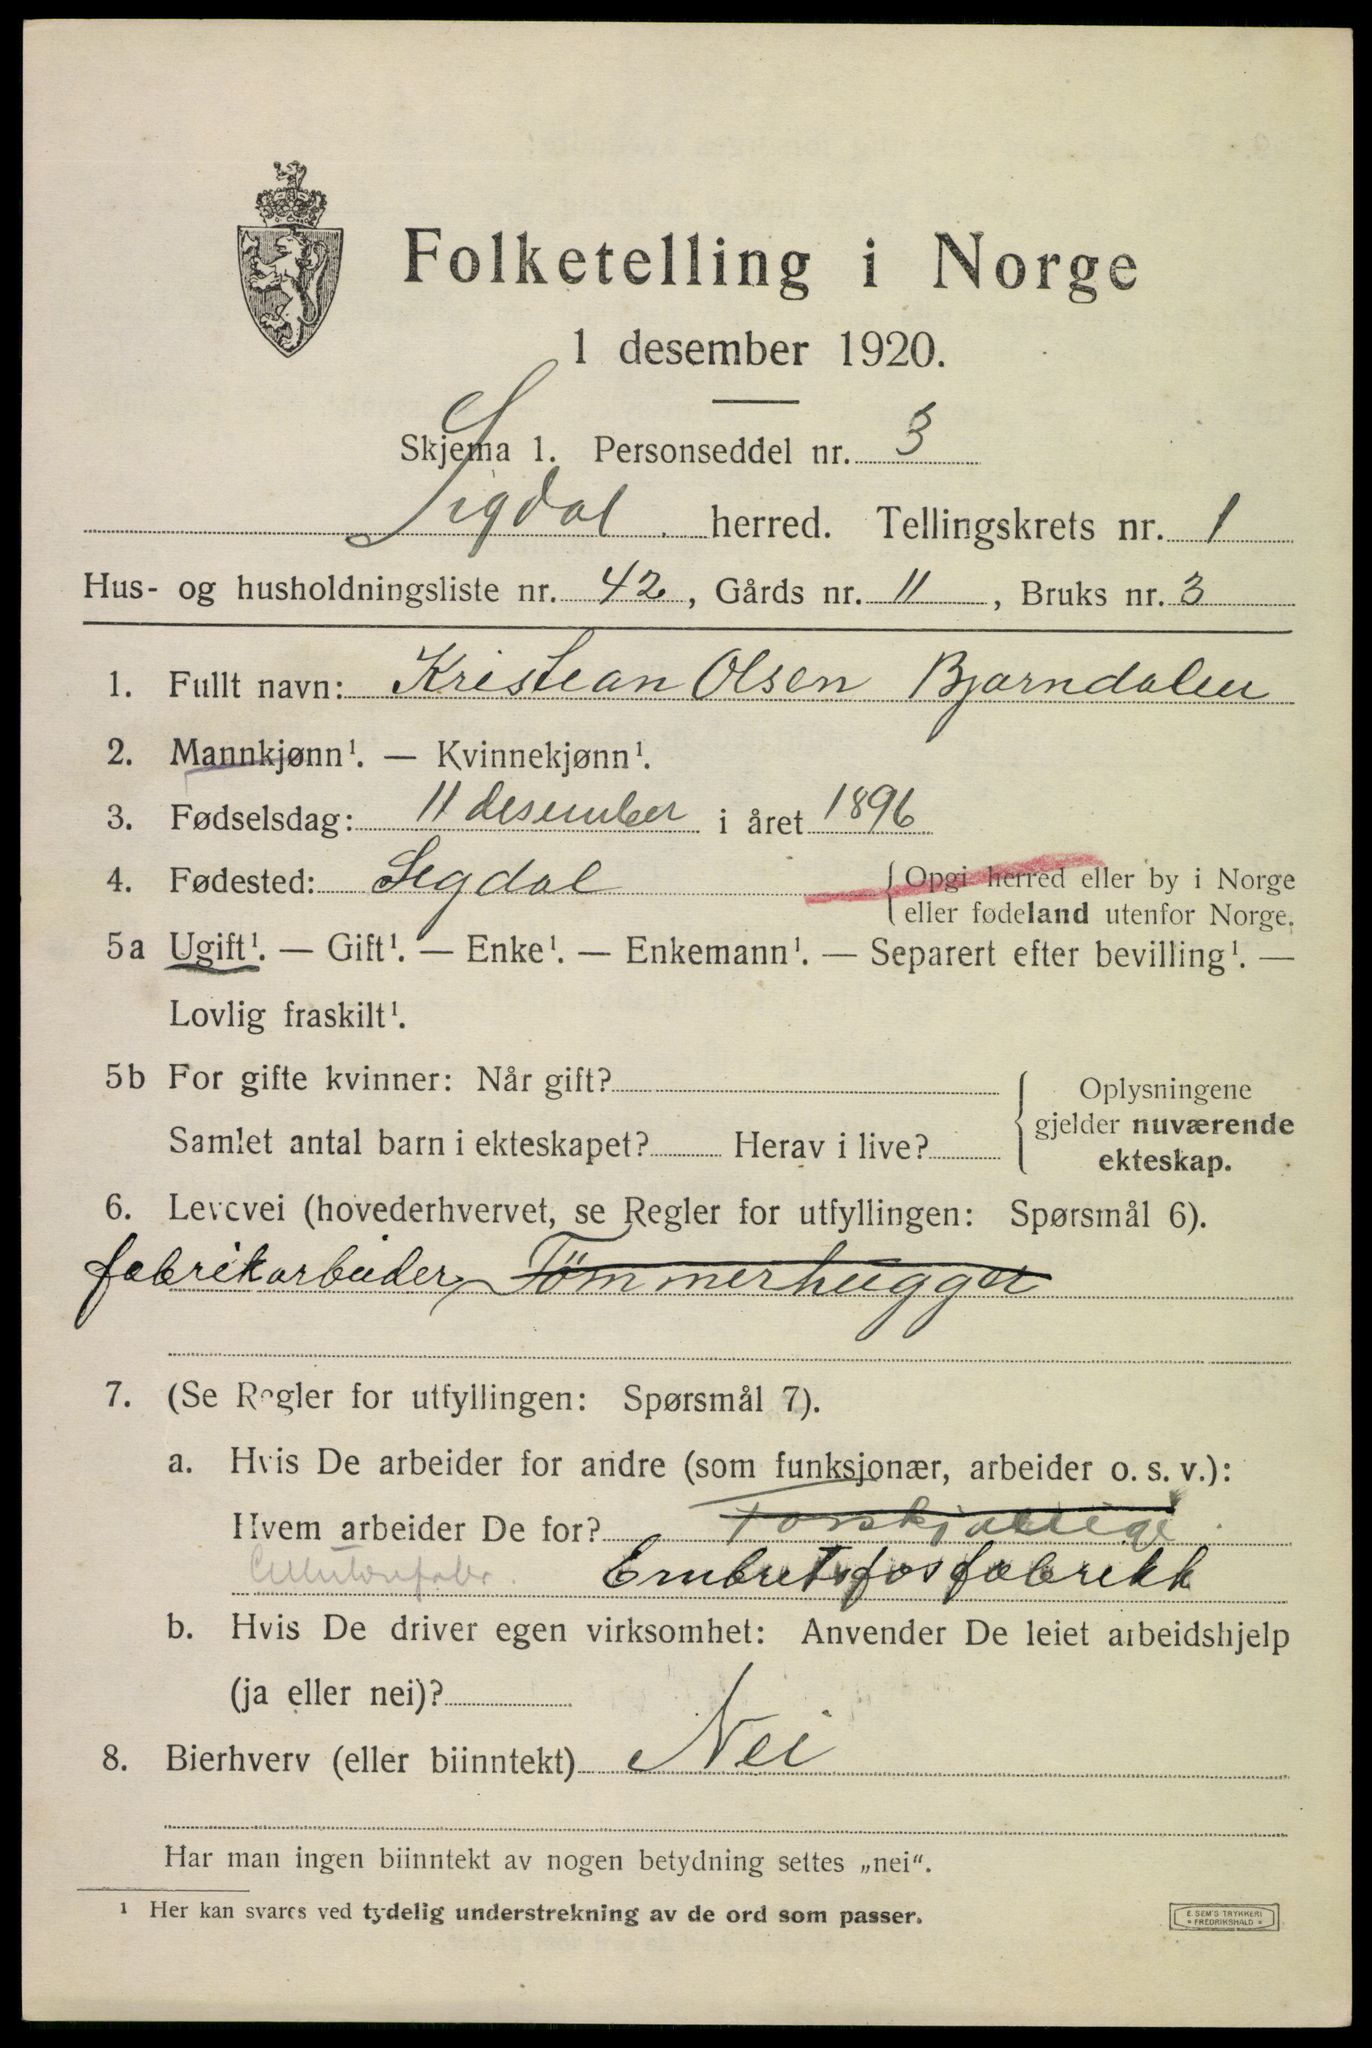 Folketelling i Norge
1 desember 1920.
Skjema 1. Personseddel nr. 3
Sigdal herred. Tellingskrets nr. 1
Hus- og husholdningsliste nr. 42, Gårds nr. 11, Bruks nr. 3
1. Fullt navn: Kristian Olsen Bjørndalen
2. Mannkjønn¹. — Kvinnekjønn¹.
3. Fødselsdag: 11 desember i året 1896
4. Fødested: Sigdal { Opgi herred eller by i Norge
eller fødeland utenfor Norge.
5a Ugift¹. — Gift¹. — Enke¹. — Enkemann¹. — Separert efter bevilling¹. —
Lovlig fraskilt¹.
5b For gifte kvinner: Når gift?
Samlet antal barn i ekteskapet? Herav i live?
{ Oplysningene
gjelder nuværende
ekteskap.
6. Levevei (hovederhvervet, se Regler for utfyllingen: Spørsmål 6).
fabrikarbeider, Tømmerhugger
7. (Se Regler for utfyllingen: Spørsmål 7).
a. Hvis De arbeider for andre (som funksjonær, arbeider o. s. v.):
Hvem arbeider De for? Forskjællige
Embretsfosfabrikk
b. Hvis De driver egen virksomhet: Anvender De leiet arbeidshjelp
(ja eller nei)?
8. Bierhverv (eller biinntekt) Nei
Har man ingen biinntekt av nogen betydning settes „nei“.
¹ Her kan svares ved tydelig understrekning av de ord som passer.
E. SEM'S TRYKKERI
* FREDRIKSHALD *